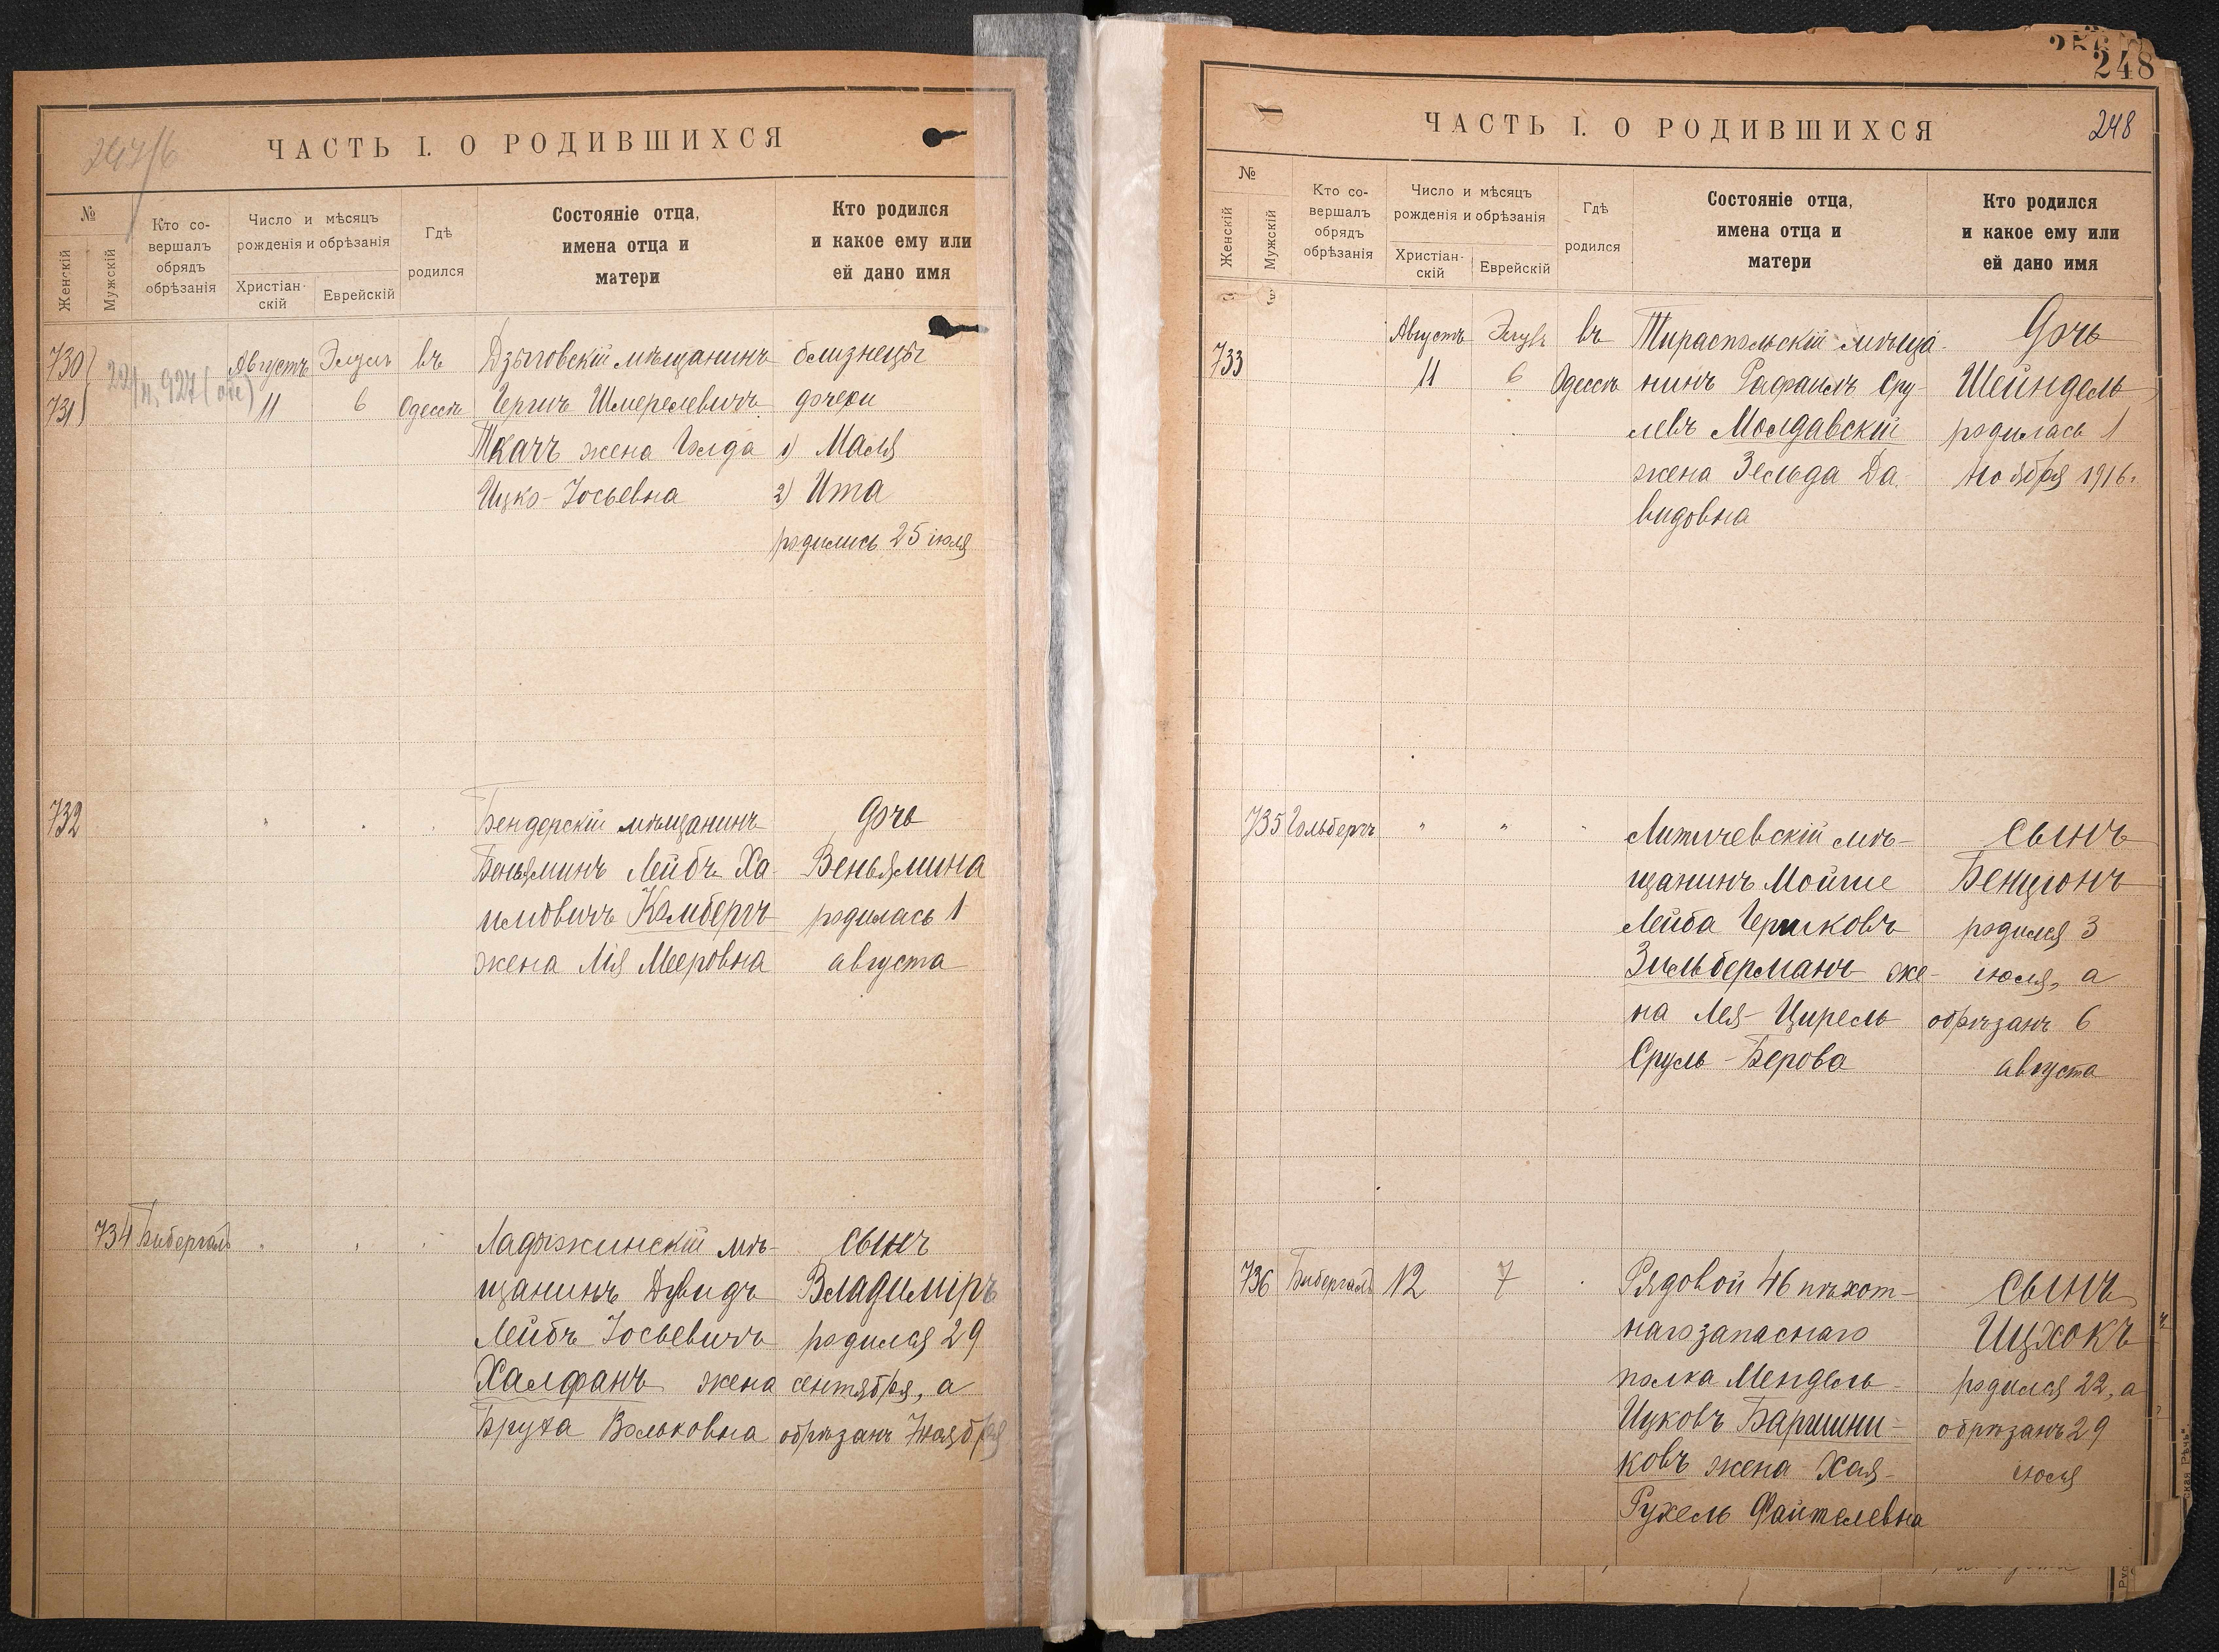 247/6
ЧАСТЬ I. О РОДИВШИХСЯ
№
Женскій
Мужскій
Кто со-
вершалъ
обрядъ
обрѣзанія
Число и мѣсяцъ
рожденія и обрѣзанія
Христіан-
скій
Еврейскій
Гдѣ
родился
Состояніе отца,
имена отца и
матери
Кто родился
и какое ему или
ей дано имя
730 Августъ Элулъ въ Дзыговскій мѣщанинъ близнецы
731 11 6 Одессѣ Гершъ Шмерелевичъ дочери
Ткачъ жена Голда 1) Маля
Ицко-Іосьевна 2) Ита
родились 25 іюля
732 " " " Бендерскій мѣщанинъ дочь
Веньяминъ Лейбъ Ха- Веньямина
имовичъ Камбергъ родилась 1
жена Лія Мееровна августа
734 Бибергалъ " " " Ладыжинскій мѣ- сынъ
щанинъ Дувидъ Владиміръ
Лейбъ Іосьевичъ родился 29
Халфанъ жена сентября, а
Бруха Вольковна обрѣзанъ 7 ноября
248
ЧАСТЬ I. О РОДИВШИХСЯ
248
№
Женскій
Мужскій
Кто со-
вершалъ
обрядъ
обрѣзанія
Число и мѣсяцъ
рожденія и обрѣзанія
Христіан-
скій
Еврейскій
Гдѣ
родился
Состояніе отца,
имена отца и
матери
Кто родился
и какое ему или
ей дано имя
Августъ Элулъ въ Тираспольскій мѣща- дочь
733 11 6 Одессѣ нинъ Рафаилъ Сру- Шейндель
левъ Молдавскій родилась 1
жена Зельда Да- ноября 1916.
видовна
735 Гольбергъ " " " Литичевскій мѣ- сынъ
щанинъ Мойше Бенціонъ
Лейба Гершковъ родился 3
Зильберманъ же- іюля, а
на Лея-Цирель обрѣзанъ 6
Сруль-Берова августа
736 Бибергалъ 12 7 Рядовой 46 пѣхот- сынъ
наго запаснаго Ицхокъ
полка Мендель родился 22, а
Ицковъ Баршни- обрѣзанъ 29
ковъ жена Хая- іюля
Рухель Файтелевна